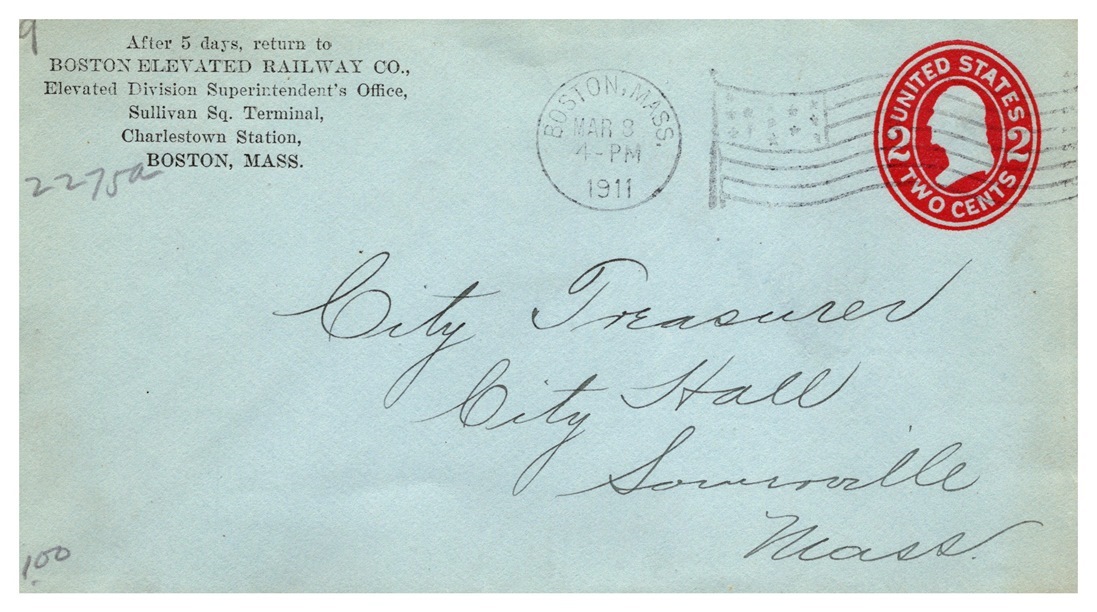 9
After 5 days, return to
BOSTON ELEVATED RAILWAY CO.,
Elevated Division Superintendent's Office,
Sullivan Sq. Terminal,
Charlestown Station,
BOSTON, MASS.
2275a
BOSTON, MASS.
MAR 8
4-PM
1911
UNITED STATES
2 2
TWO CENTS
City Treasurer
City Hall
Somerville
Mass.
1.00